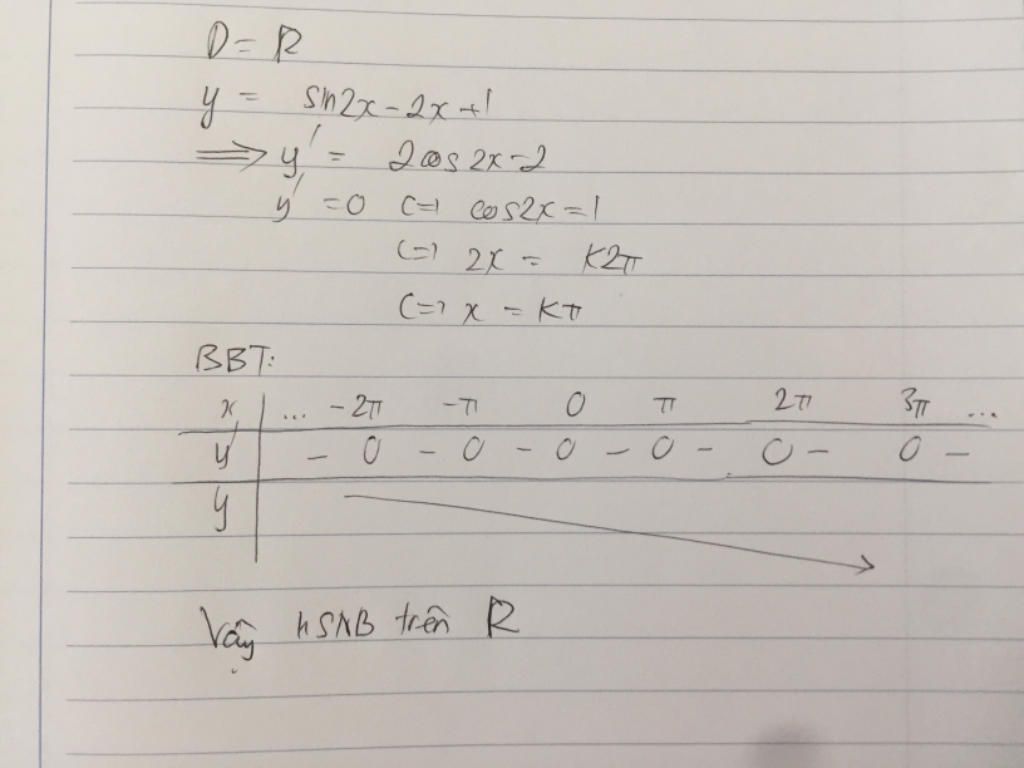 D = R
y = sin2x - 2x + 1
=> y' = 2cos2x - 2
y' = 0 (=) cos2x = 1
(=) 2x = K2π
(=) x = Kπ
BBT:
x ... -2π -π 0 π 2π 3π ...
y' - 0 - 0 - 0 - 0 - 0 - 0 -
y
Vậy HSNB trên R